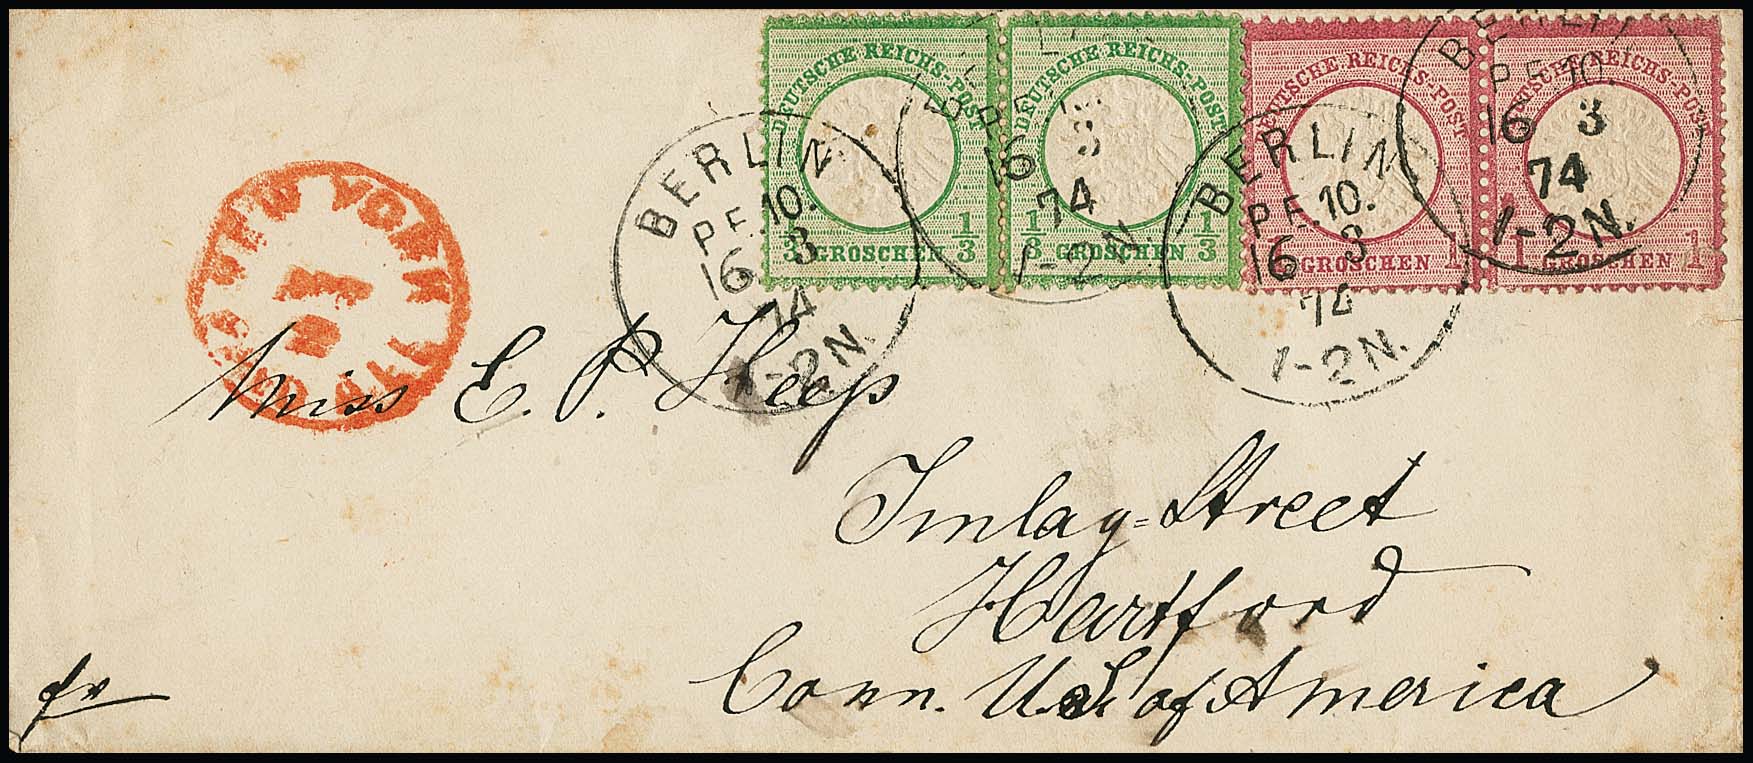 DEUTSCHE REICHS-POST
1/3 GROSCHEN 1/3
DEUTSCHE REICHS-POST
1/3 GROSCHEN 1/3
DEUTSCHE REICHS-POST
1 GROSCHEN 1
DEUTSCHE REICHS-POST
1 GROSCHEN 1
BERLIN
P.E. 10.
16 3
74
1-2N.
BERLIN
P.E.
16 3
74
1-2N
BERLIN
P.E. 10.
16 3
74
1-2N.
BERLIN
P.E. 10.
16 3
74
1-2N.
NEW YORK
PAID ALL
Miss E. P. Keep
Imlay=Street
Hartford
Conn. U. S. of America
fr